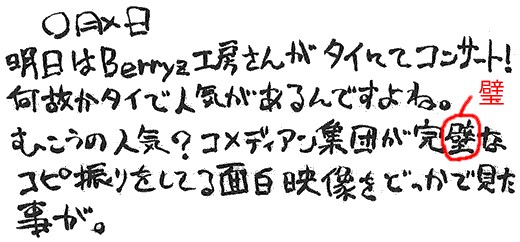 〇月×日
明日はBerryz工房さんがタイにてコンサート!
何故かタイで人気があるんですよね。
璧
むこうの人気?コメディアン集団が完壁な
コピ振りをしてる面白映像をどっかで見た
事が。